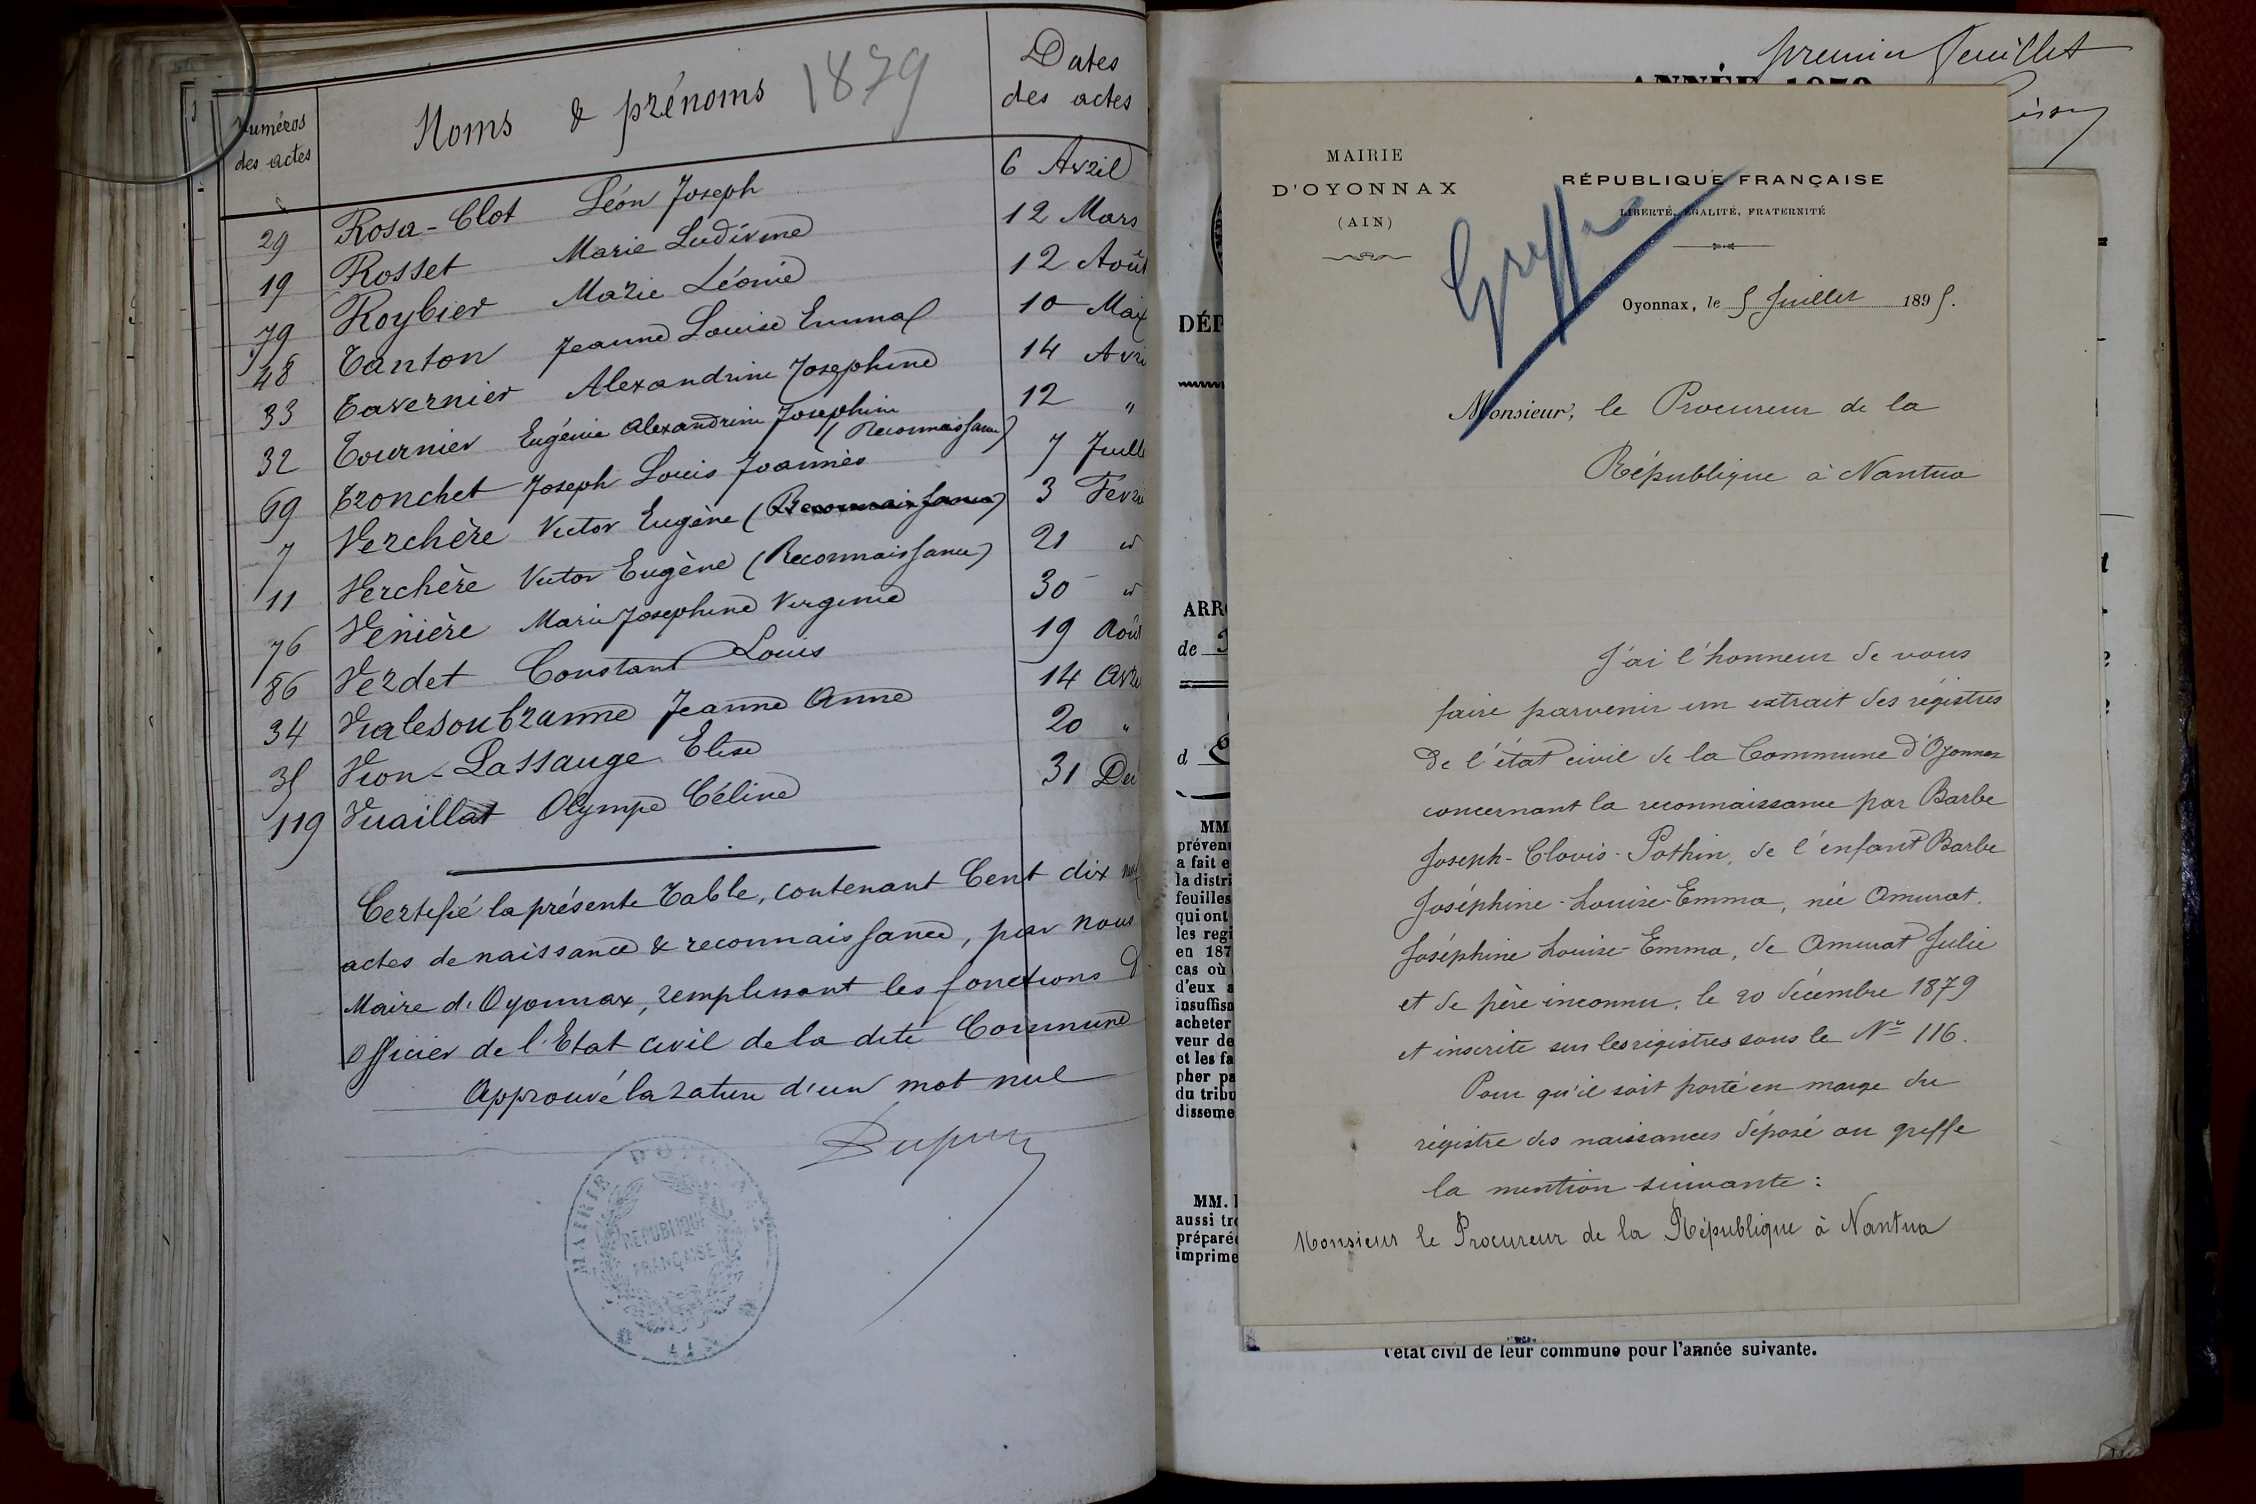 Numéros
des actes
Noms & prénoms
1879
Dates
des actes
29 Rosa-Clot Léon Joseph 6 Avril
19 Rosset Marie Ludivine 12 Mars
79 Roybier Marie Léonie 12 Août
48 Tanton Jeanne Louise Emma 10 Mai
33 Tavernier Alexandrine Josephine 14 Avri
32 Tournier Eugénie Alexandrine Josephine 12 "
(Reconnaissance)
69 Tronchet Joseph Louis Joannès 7 Juill
7 Verchère Victor Eugène (Reconnaissance) 3 Févri
11 Verchère Victor Eugène (Reconnaissance) 21 d
76 Venière Marie Josephine Virginie 30 d
86 Verdet Constant Louis 19 Août
34 Vialesoubranne Jeanne Anne 14 Avri
35 Vion-Lassauge Elise 20 "
119 Vuaillat Olympe Céline 31 Dé
Certifié la présente Table, contenant Cent dix neuf
actes de naissance & reconnaissance, par nous
Maire d'Oyonnax, remplissant les fonctions d
officier de l'Etat civil de la dite Commune
Approuvé la rature d'un mot nul
MAIRIE D'OYONNAX
RÉPUBLIQUE
FRANÇAISE
premier feuillet
ANNÉE 1879
MAIRIE
D'OYONNAX
(AIN)
RÉPUBLIQUE FRANÇAISE
LIBERTÉ, ÉGALITÉ, FRATERNITÉ
Greffe
Oyonnax, le 5 Juillet 1895.
Monsieur, le Procureur de la
République à Nantua
J'ai l'honneur de vous
faire parvenir un extrait des régistres
de l'état civil de la Commune d'Oyonnax
concernant la reconnaissance par Barbe
Joseph-Clovis-Pothin, de l'enfant Barbe
Joséphine-Louise-Emma, née Amurat.
Joséphine Louise-Emma, de Amurat Julie
et de père inconnu, le 20 décembre 1879
et inscrite sur les registres sous le Nº 116.
Pour qu'il soit porté en marge du
régistre des naissances déposé au greffe
la mention suivante :
Monsieur le Procureur de la République à Nantua
DÉP
ARR
de
d
MM.
préven
a fait e
la distri
feuilles
qui ont
les regi
en 187
cas où
d'eux a
insuffisa
acheter
veur de
et les fa
pher pa
du tribu
disseme
MM.
aussi tr
préparé
imprime
l'état civil de leur commune pour l'année suivante.